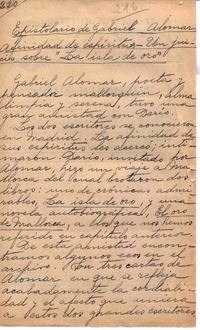 220
216
Epistolario de Gabriel Alomar
Afinidad de espíritus - Un jui-
cio sobre "La isla de oro"
Gabriel Alomar, poeta y
pensador mallorquín, alma
limpia y serena, tuvo una
gran amistad con Darío.
Los dos escritores se conocieron
en Madrid. La afinidad de
sus espíritus les acercó; inti-
maron. Darío, invitado por
Alomar, hizo un viaje a Ma-
llorca del cual brotaron dos
libros: uno de crónicas admi-
rables, La isla de oro, y una
novela autobiográfica, El oro
de Mallorca, a los que nos hemos
referido en capítulo anterior.
De esta amistad encon-
tramos algunos ecos en el
archivo. Son tres cartas de
Alomar en que se refleja
acabadamente la cordiali-
dad y el afecto que uniera
a estos dos grandes escritores